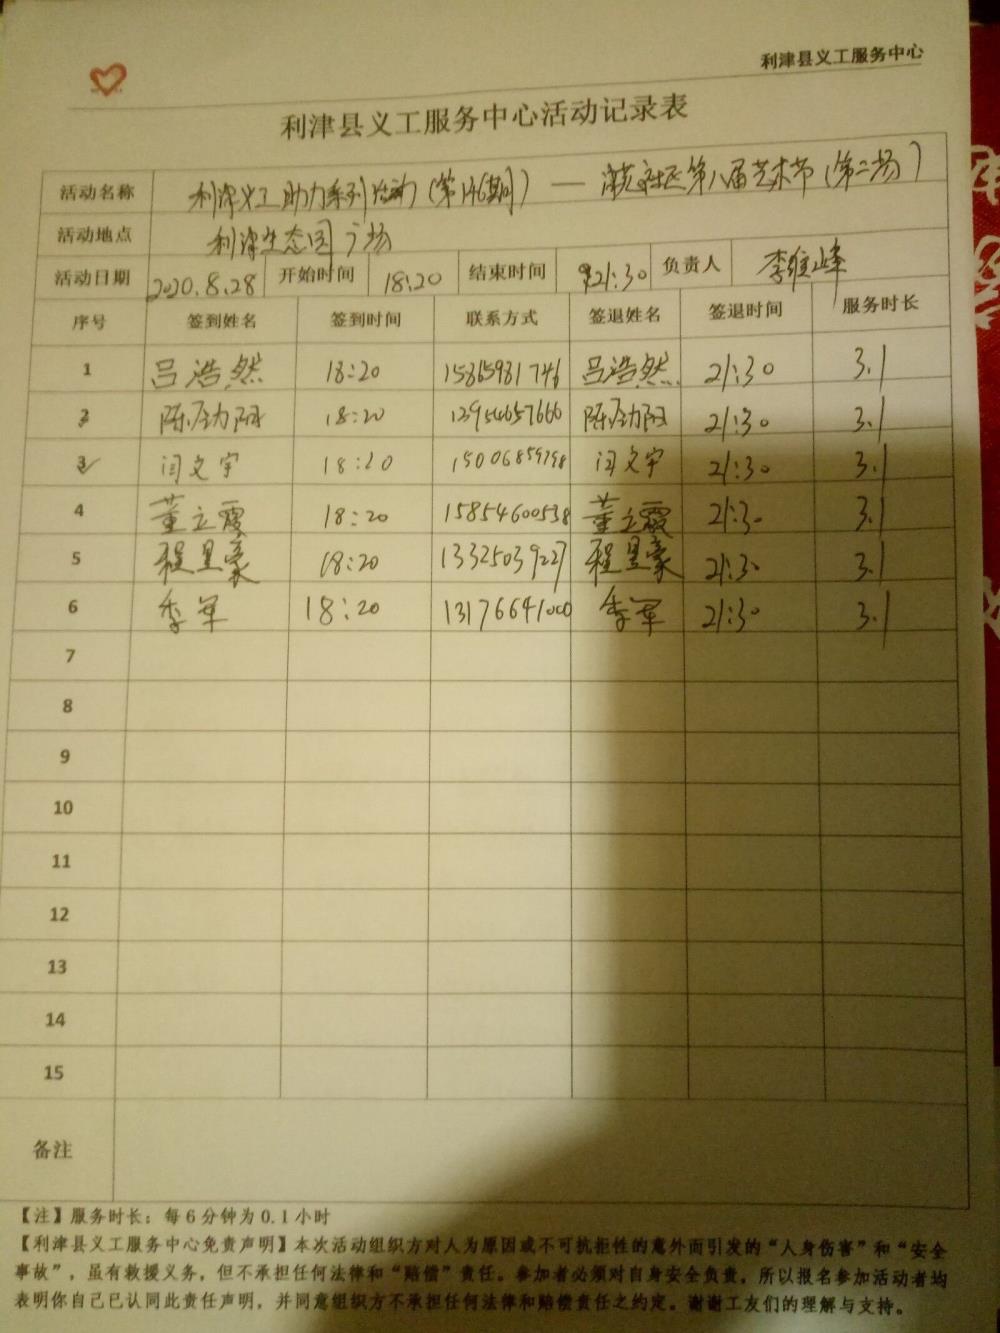 利津县义工服务中心
利津县义工服务中心活动记录表
活动名称 利津义工助力系列活动（第146期）— 社区第八届艺术节（第二场）
活动地点 利津生态园广场
活动日期 2020.8.28 开始时间 18:20 结束时间 21:30 负责人 李维峰
序号 签到姓名 签到时间 联系方式 签退姓名 签退时间 服务时长
1 吕浩然 18:20 15865931746 吕浩然 21:30 3.1
2 18:20 13954657666 21:30 3.1
3 闫文宇 18:20 15006859798 闫文宇 21:30 3.1
4 董立霞 18:20 15854600538 董立霞 21:30 3.1
5 程昱豪 18:20 13325039227 程昱豪 21:30 3.1
6 李军 18:20 13176641000 李军 21:30 3.1
7
8
9
10
11
12
13
14
15
备注
【注】服务时长：每6分钟为0.1小时
【利津县义工服务中心免责声明】本次活动组织方对人为原因或不可抗拒性的意外而引发的“人身伤害”和“安全
事故”，虽有救援义务，但不承担任何法律和“赔偿”责任。参加者必须对自身安全负责，所以报名参加活动者均
表明你自己已认同此责任声明，并同意组织方不承担任何法律和赔偿责任之约定。谢谢工友们的理解与支持。